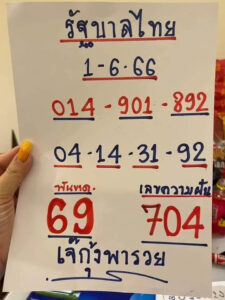 รัฐบาลไทย
1-6-66
014-901-892
04-14-31-92
พันทด. เลขความฝัน
69 704
เจ๊กุ้งพารวย